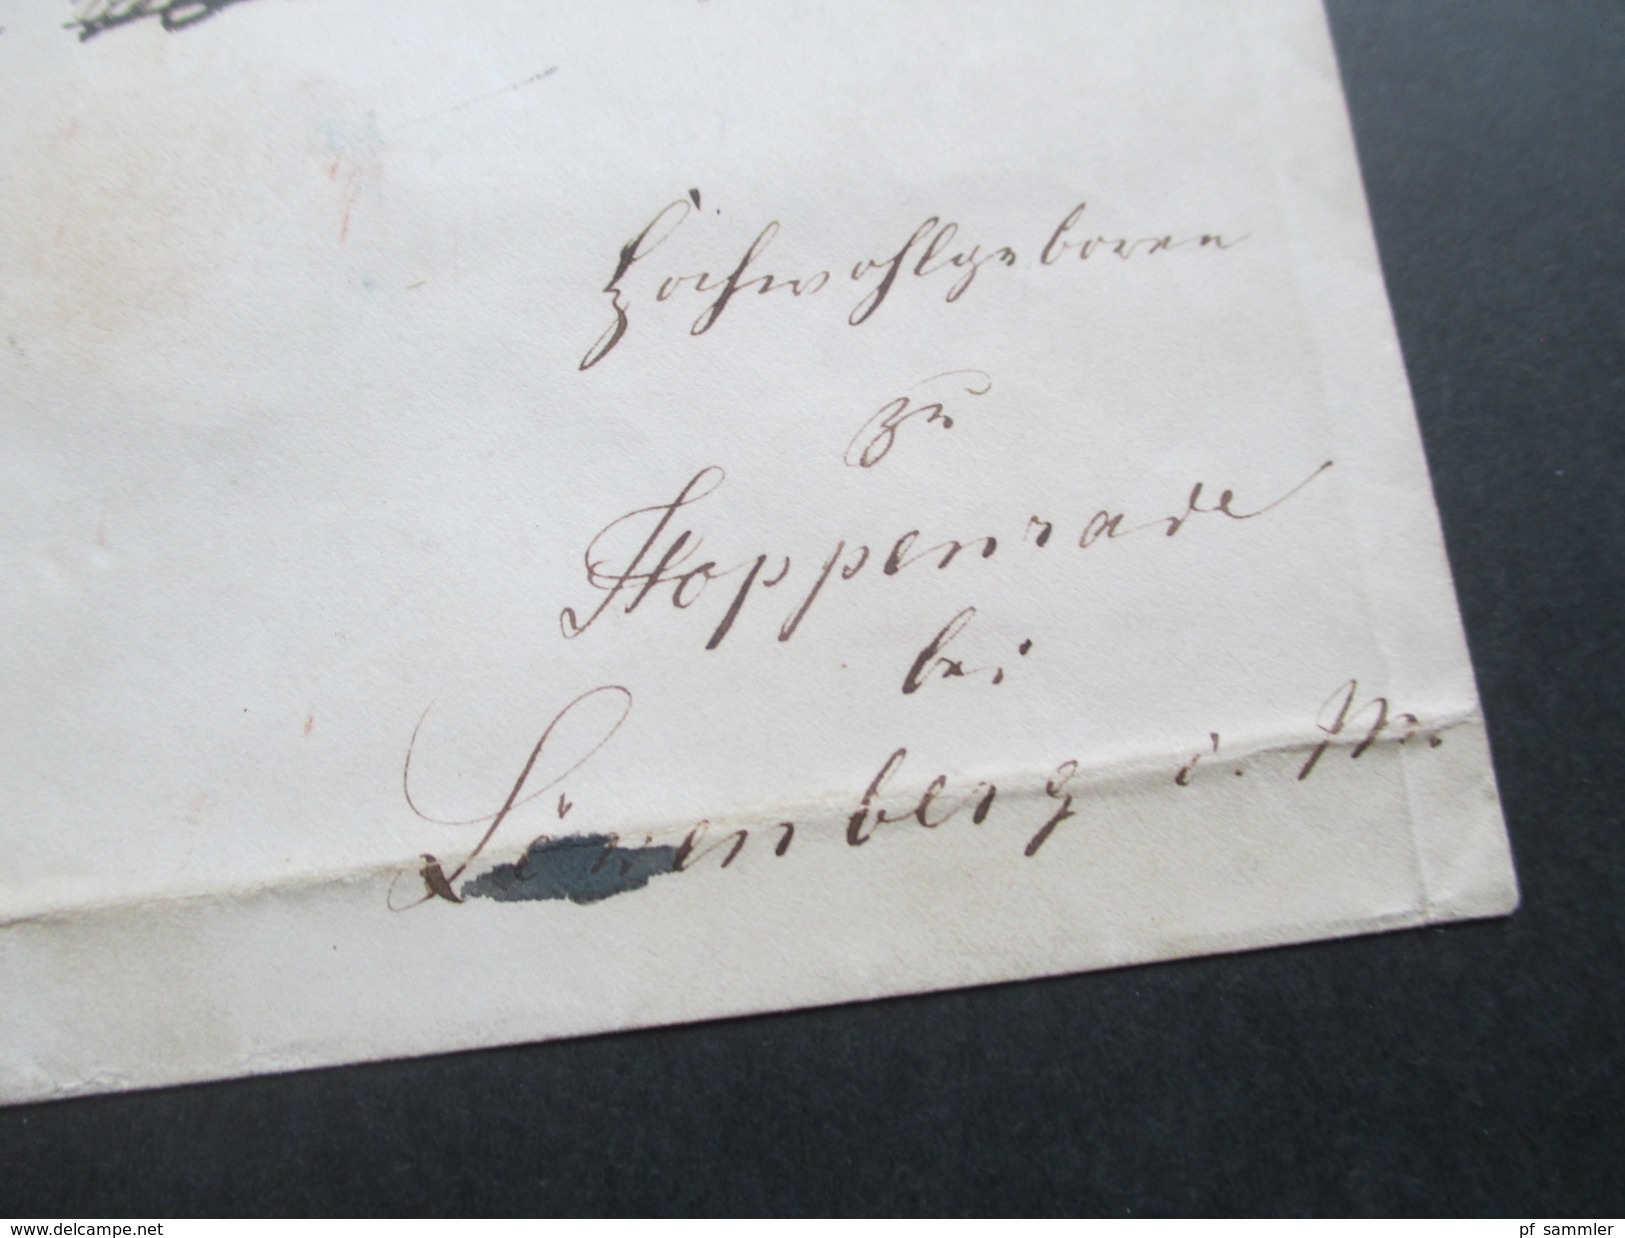 Hochwohlgeboren
zu
Hoppenrade
bei
Löwenberg i. M.
www.delcampe.net
pf sammler